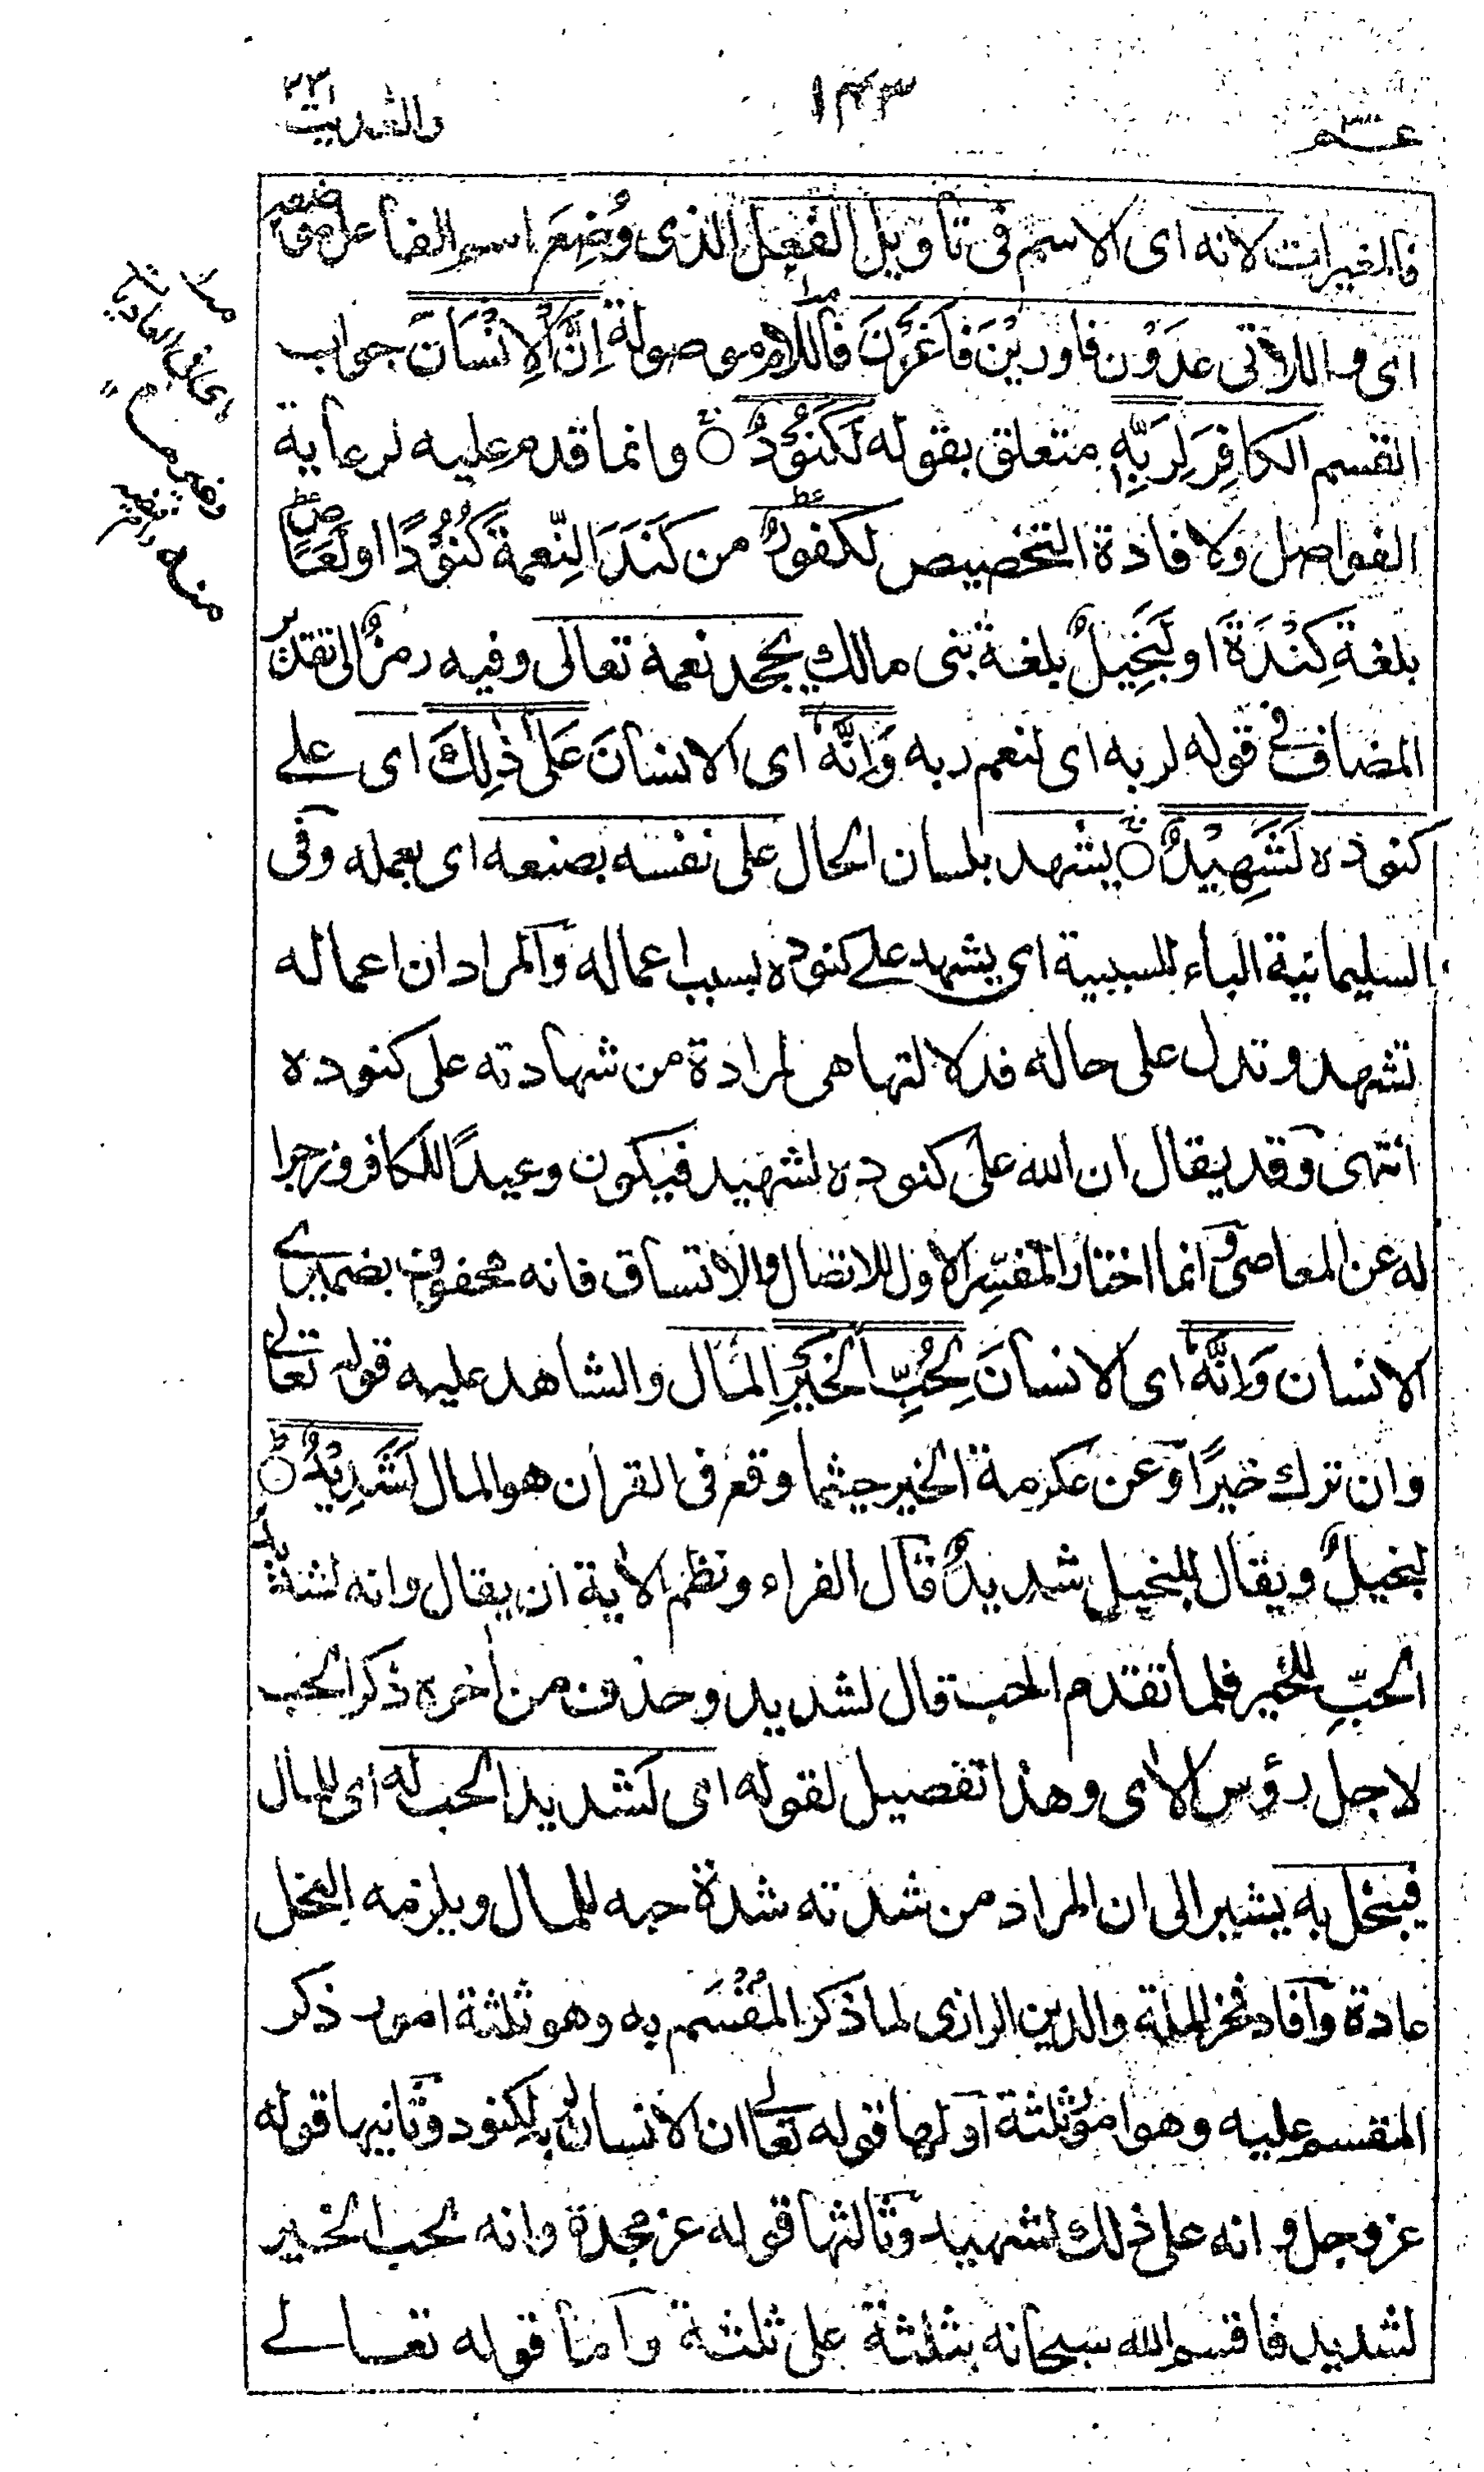 عم ٣٠
١٤٣
والعٰديٰت
فالمغيرات لانه اى الاسم فى تأويل الفعل الذى وُضِعَ اسم الفاعل موضعه
اى و اللاتى عدَوْن فاوريْنَ فاَغَرْنَ فاللام موصولة اِنَّ الْاِنْسَانَ جواب
القسم الكافِرَ لِرَبِّهٖ متعلق بقوله لَكَنُوْدٌ ۚ وانما قدم عليه لرعاية
الفواصل ولافادة التخصيص لكفورٌ من كَنَدَ النِّعمةَ كُنُوْدًا اولَعَاصٍ
بلغة كِنْدَةَ او لَبَخِيلٌ بلغة بنى مالك يجحد نعمه تعالى وفيه رمزٌ الى تقدير
المضاف فى قوله لربه اى لنعم ربه وَاِنَّهٗ اى الانسانَ عَلٰى ذٰلِكَ اى على
كنوده لَشَهِيْدٌ ۚ يشهد بلسان الحال على نفسه بصنعه اى بعمله وفى
السليمانية الباء للسببية اى يشهد على كنوده بسبب اعماله والمراد ان اعماله
تشهد و تدل على حاله فدلالتها هى المرادة من شهادته على كنوده
انتهى وقد يقال ان الله على كنوده لشهيد فيكون وعيدًا للكافر وزجرا
له عن المعاصى وانما اختار المفسِّر الاول للاتصال والاتساق فانه محفوف بضميرى
الانسان وَاِنَّهٗ اى الانسانَ لِحُبِّ الْخَيْرِ المال والشاهد عليه قوله تعالى
وان ترك خيرًا وعن عكرمة الخير حيثما وقع فى القرآن هو المال لَشَدِيْدٌ ۗ
لبخيلٌ ويقال للبخيل شديدٌ قال الفراء ونظم الآية ان يقال وانه لشديد
الحبِّ للخير فلما تقدم الحب قال لشديد وحذف من آخره ذكر الحب
لاجل رؤس الآى وهذا تفصيل لقوله اى لشديد الحب له اى للمال
فيبخل به يشير الى ان المراد من شدته شدة حبه للمال ويلزمه البخل
عادة وآفاد فخر الملة والدين الرازى لما ذكر المُقْسَم به وهو ثلثة امور ذكر
المقسم عليه وهو امور ثلثة اولها قوله تعالى ان الانسان لربه لكنود وثانيها قوله
عز وجل و انه على ذلك لشهيد وثالثها قوله عز مجده وانه لحب الخير
لشديد فاقسم الله سبحانه بثلثة على ثلثة واما قوله تعالى